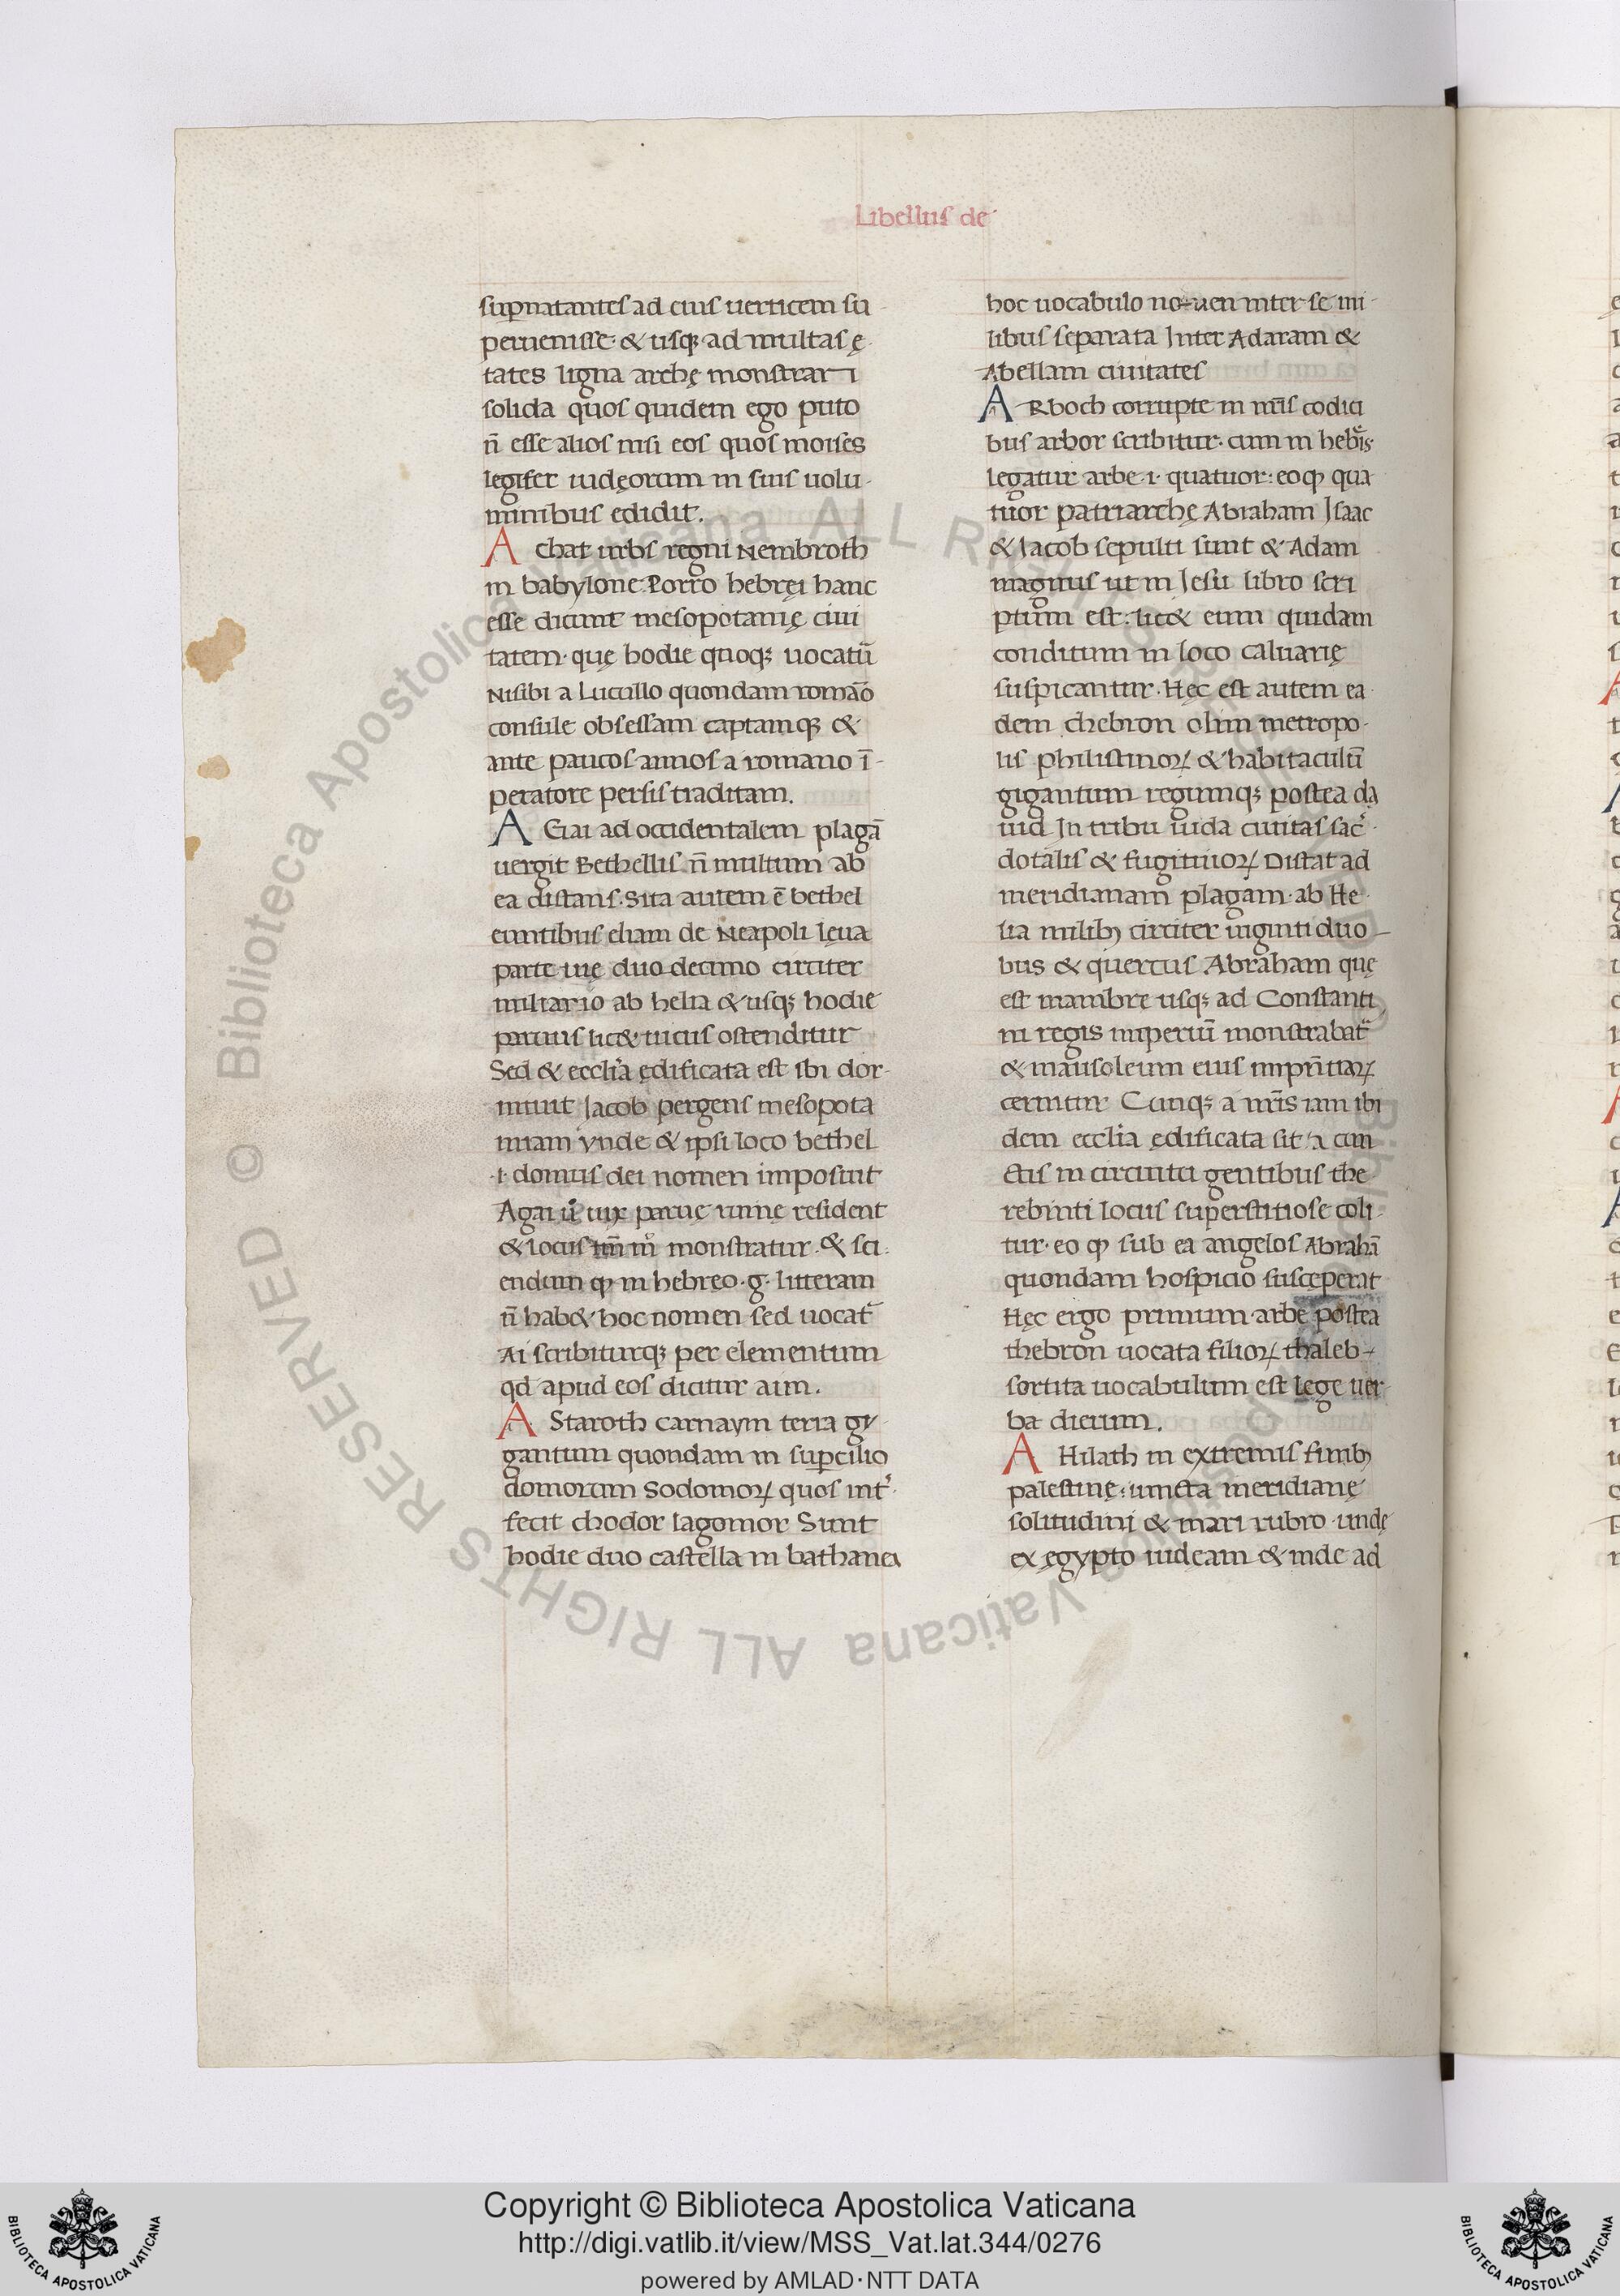 Libellus de
sup̱natantes ad eius uerticem su
peruenisse· & usq; ad multas ę
tates ligna archę monstrari
solida quos quidem ego puto
n̄ esse alios nisi eos quos moises
legifer iudęorum in suis uolu
minibus edidit.
Achat urbs regni Nembroth
in babylone. Porro hebręi hanc
esse dicunt mesopotamię ciui
tatem· quę hodie quoq; uocatū
Nisibi a Lucullo quondam romāo
consule obsessam captamq; &
ante paucos annos a romano ī
peratore persis traditam.
AGai ad occidentalem plagā
uergit Bethellis n̄ multum ab
ea distans. Sita autem ē bethel
euntibus eliam de Neapoli lęua
parte uię duo decimo circiter
miliario ab helia & usq; hodie
paruus lic& uicus ostenditur
Sed & eccl̄ia ędificata est ibi dor
miuit Jacob pergens mesopota
miam ynde & ipsi loco bethel
·i· domus dei nomen imposuit
Agai ů uix paruę uinę resident
& locus tm̄m̊ monstratur. & sci
endum qꝫ in hebreo ·g· litteram
n̄ hab& hoc nomen sed uocat̄
Ai scribiturq; per elementum
qd apud eos dicitur aim.
AStaroth carnaym terra gy
gantum quondam in sup̱cilio
domorum Sodomoꝝ quos int̓
fecit chodor lagomor Sunt
hodie duo castella in bathanea
hoc uocabulo nouen inter se mi
libus separata Inter Adaram &
Abellam ciuitates
ARboch corrupte in nr̄is codici
bus arbor scribitur· cum in hebr̄is
legatur arbe ·i· quatuor: eoqꝫ qua
tuor patriarchę Abraham Jsaac
& Iacob sepulti sunt & Adam
magnus ut in Jesu libro scri
ptum est: lic& eum quidam
conditum in loco caluarię
suspicantur. Hęc est autem ea
dem chebron olim metropo
lis philistinoꝝ & habitaculū
gigantum regumq; postea da
uid In tribu iuda ciuitas sac̓
dotalis & fugitiuoꝝ Distat ad
meridianam plagam· ab He
lia milib; circiter uiginti duo
bus & quercus Abraham quę
est mambre usq; ad Constanti
ni regis imperiū monstrabat̄
& mausoleum eius inpn̄tiaꝝ
cernitur Cunq; a nr̄is iam ibi
dem eccl̄ia ędificata sit ´a cun
ctis in circuitu gentibus the
rebinti locus superstitiose coli
tur· eo qꝫ sub ea angelos Abrahā
quondam hospicio susceperat
Hęc ergo primum· arbe postea
thebron uocata filioꝝ thaleb
sortita uocabulum est lege uer
ba dierum.
AHilath in extremis finib;
palestinę· iuncta meridianę
solitudini & mari rubro· unde
ex ęgypto iudęam & inde ad
Copyright © Biblioteca Apostolica Vaticana
http://digi.vatlib.it/view/MSS_Vat.lat.344/0276
powered by AMLAD·NTT DATA
BIBLIOTECA APOSTOLICA VATICANA
BIBLIOTECA APOSTOLICA VATICANA
© Biblioteca Apostolica Vaticana ALL RIGHTS RESERVED © Biblioteca Apostolica Vaticana ALL RIGHTS RESERVED